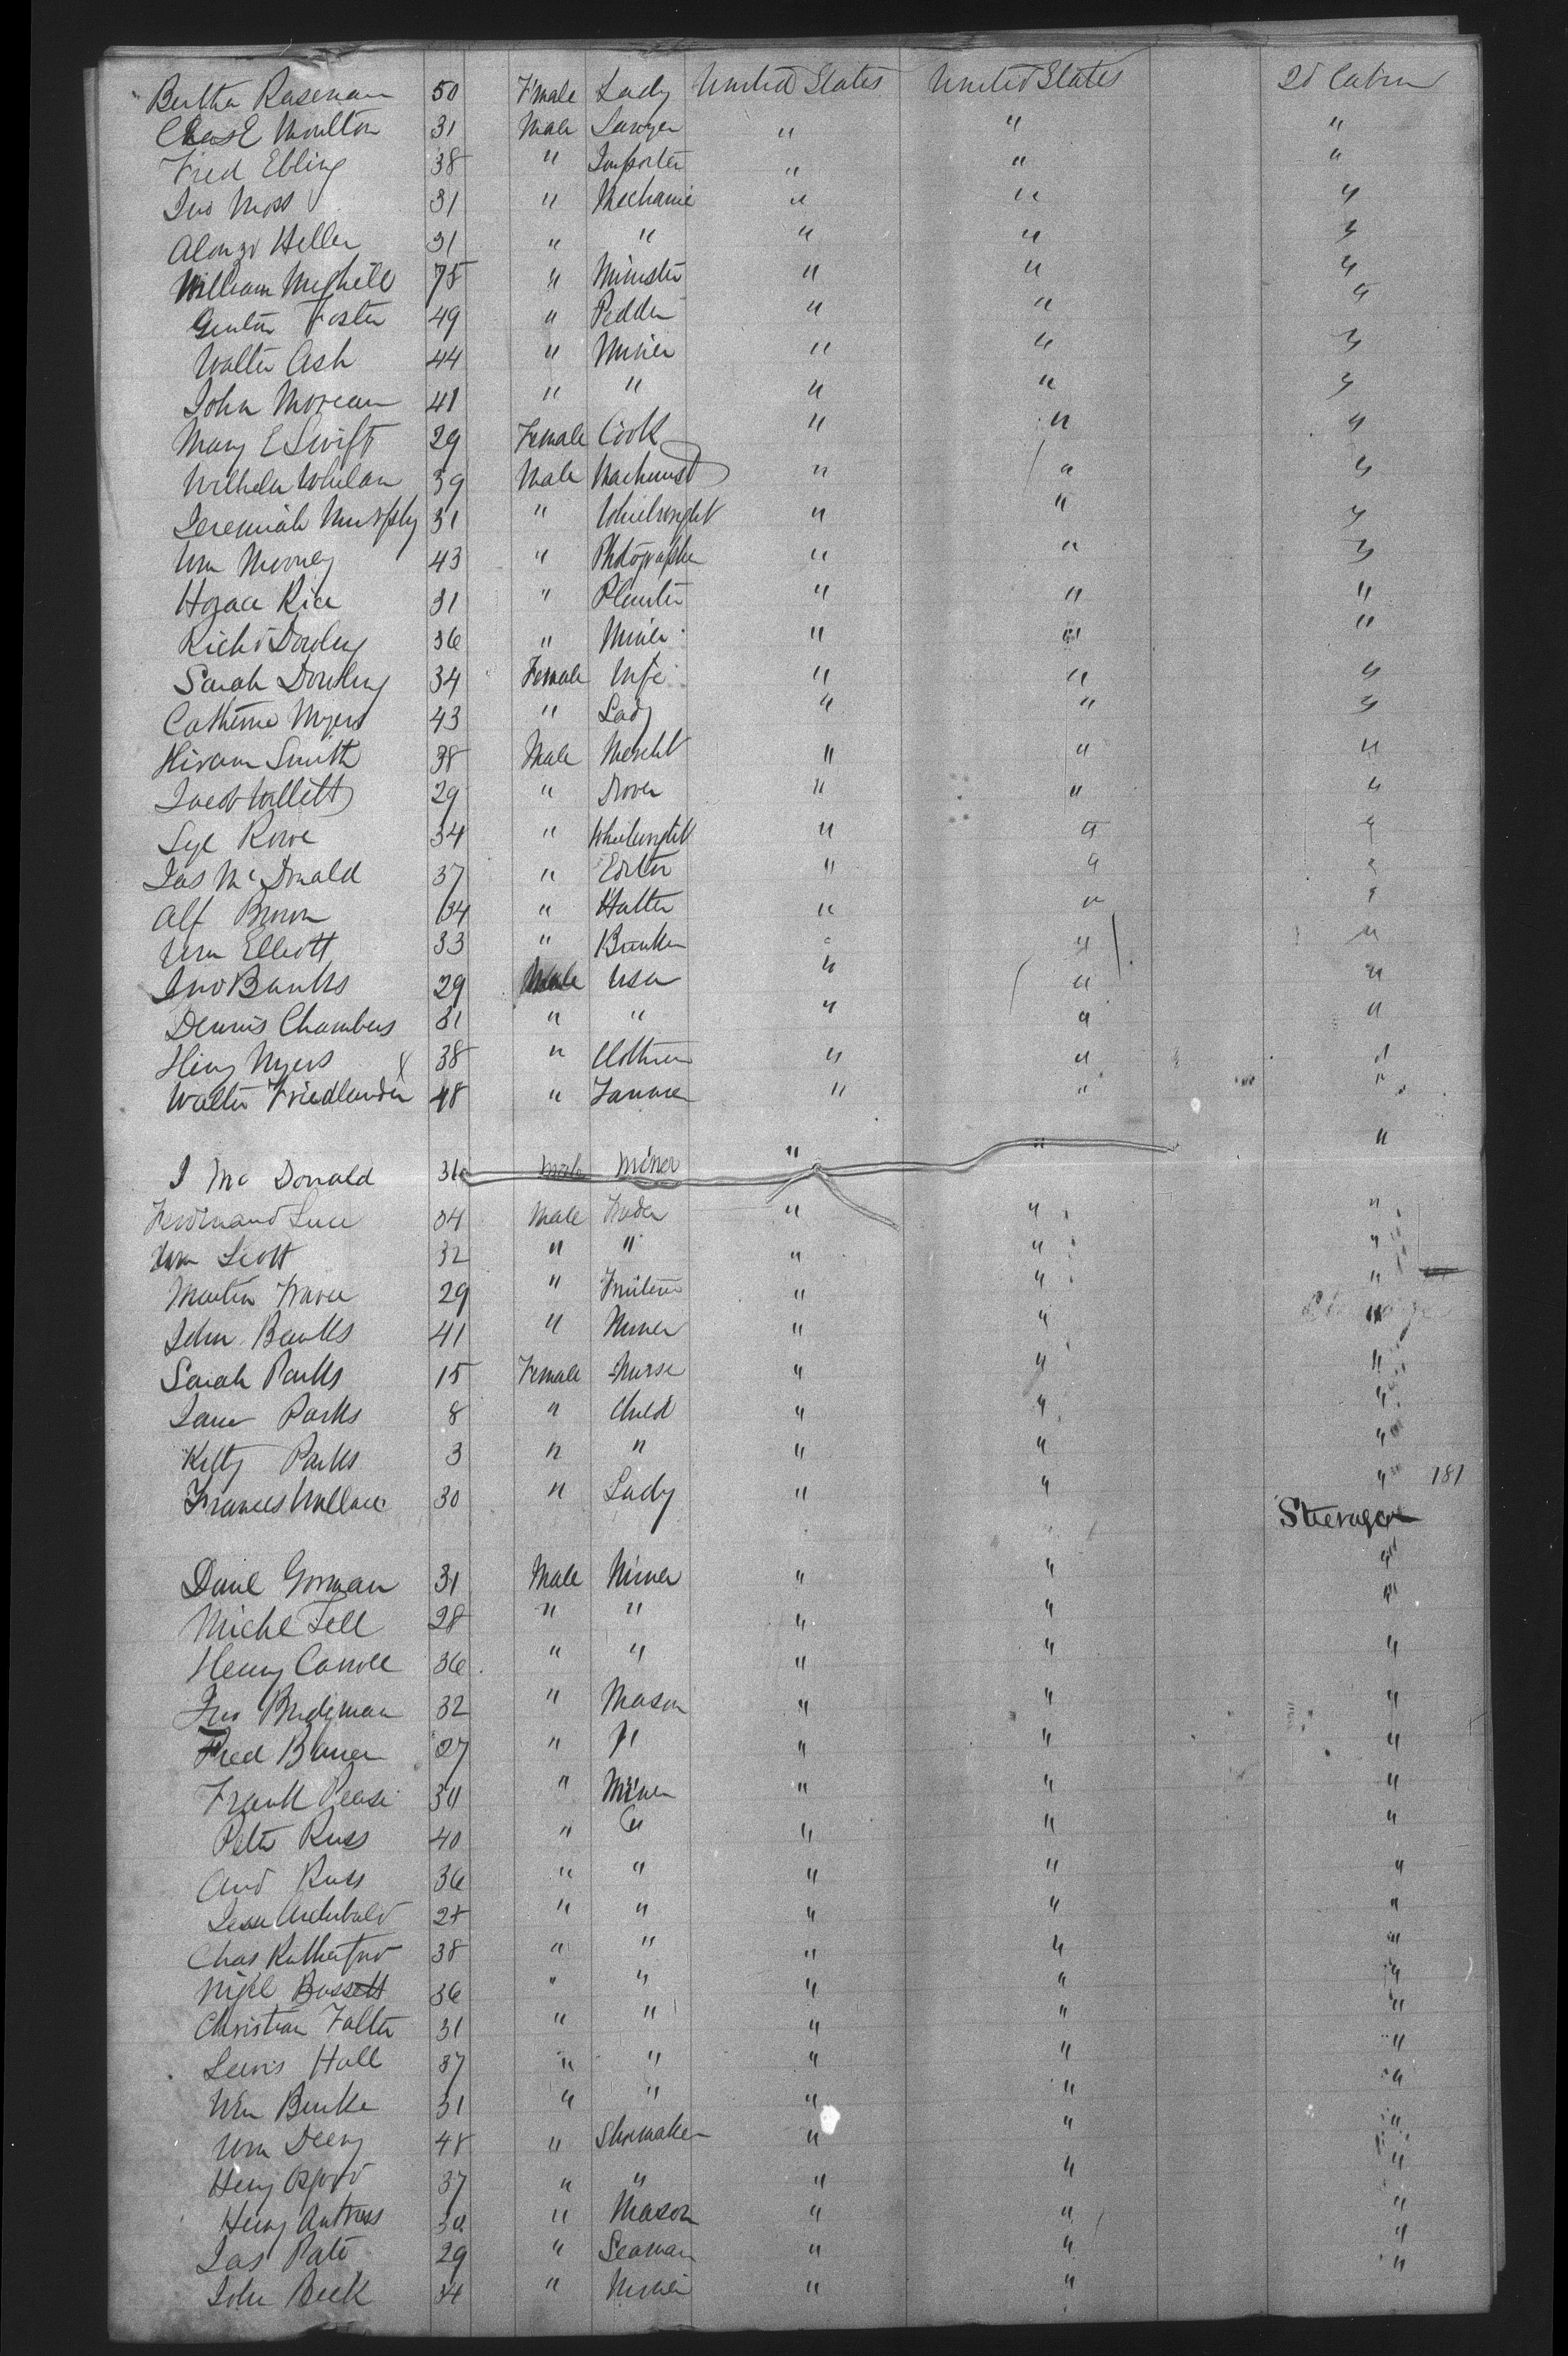 Bertha Raseman 50 Female Lady United States United States 2d Cabin
Chas E Moulton 31 Male Lawyer " " "
Fred Ebling 38 " Importer " " "
Jno Moss 31 " Mechanic " " "
Alonzo Heller 31 " " " " "
William Meghill 75 " Minister " " "
Foster 49 " Peddler " " "
Walter Ash 44 " Miner " " "
John Morean 41 " " " " "
Mary E Swift 29 Female Cook " " "
Whelan 39 Male Machinist " " "
Jeremiah Murphy 31 " Wheelwright " " "
Wm Mooney 43 " Photographer " " "
Horace Rice 31 " Planter " " "
Richd Dowling 36 " Miner " " "
Sarah Dowling 34 Female Wife " " "
Catherine Myers 43 " Lady " " "
Hiram Smith 38 Male Mercht " " "
Jacob Willett 29 " Drover " " "
Rowe 34 " Wheelwright " " "
Jas McDonald 37 " Editor " " "
Alf Brown 34 " Hatter " " "
Wm Elliott 33 " Banker " " "
Jno Banks 29 Male " " "
Dennis Chambers 31 " " " " "
Heny Myers 38 " Clothier " " "
Walter Friedlander 48 " Farmer " " "
J McDonald 31 Male Miner " " "
Ferdinand Luce 34 Male Trader " " "
Wm Scott 32 " " " " "
Martin 29 " Fruiterer " " "
John Banks 41 " Miner " " "
Sarah Parks 15 Female Nurse " " "
Jane Parks 8 " Child " " "
Kitty Parks 3 " " " " "
Frances Wallace 30 " Lady " " " 181
Steerage
Danl Gorman 31 Male Miner " " "
Michl Fell 28 " " " " "
Henry Carroll 36 " " " " "
Jno Bridgman 32 " Mason " " "
Fred Bauer 27 " " " " "
Frank Pease 30 " Miner " " "
Peter Russ 40 " " " " "
And Russ 36 " " " " "
Jesse Archibald 28 " " " " "
Chas Rutherford 38 " " " " "
Nigel Bassett 36 " " " " "
Christian Falter 31 " " " " "
Lewis Hall 37 " " " " "
Wm Burke 31 " " " " "
Wm Deery 48 " Shoemaker " " "
Heny Osgood 37 " " " " "
Heny Antress 30 " Mason " " "
Jas Pate 29 " Seaman " " "
John Beck 34 " Miner " "